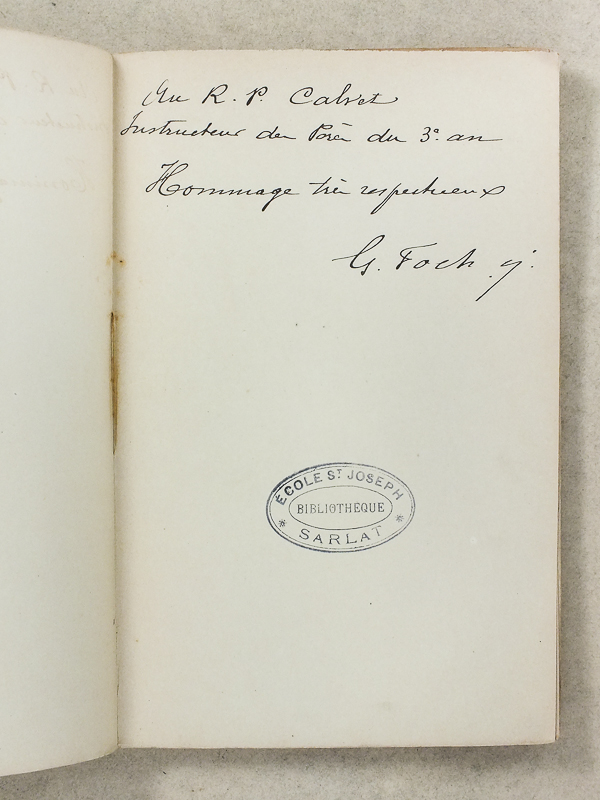 Au R. P. Calvet
Instructeur des Pères du 3e an
Hommage très respectueux
G. Foch s.j.
ÉCOLE ST JOSEPH
BIBLIOTHÈQUE
SARLAT